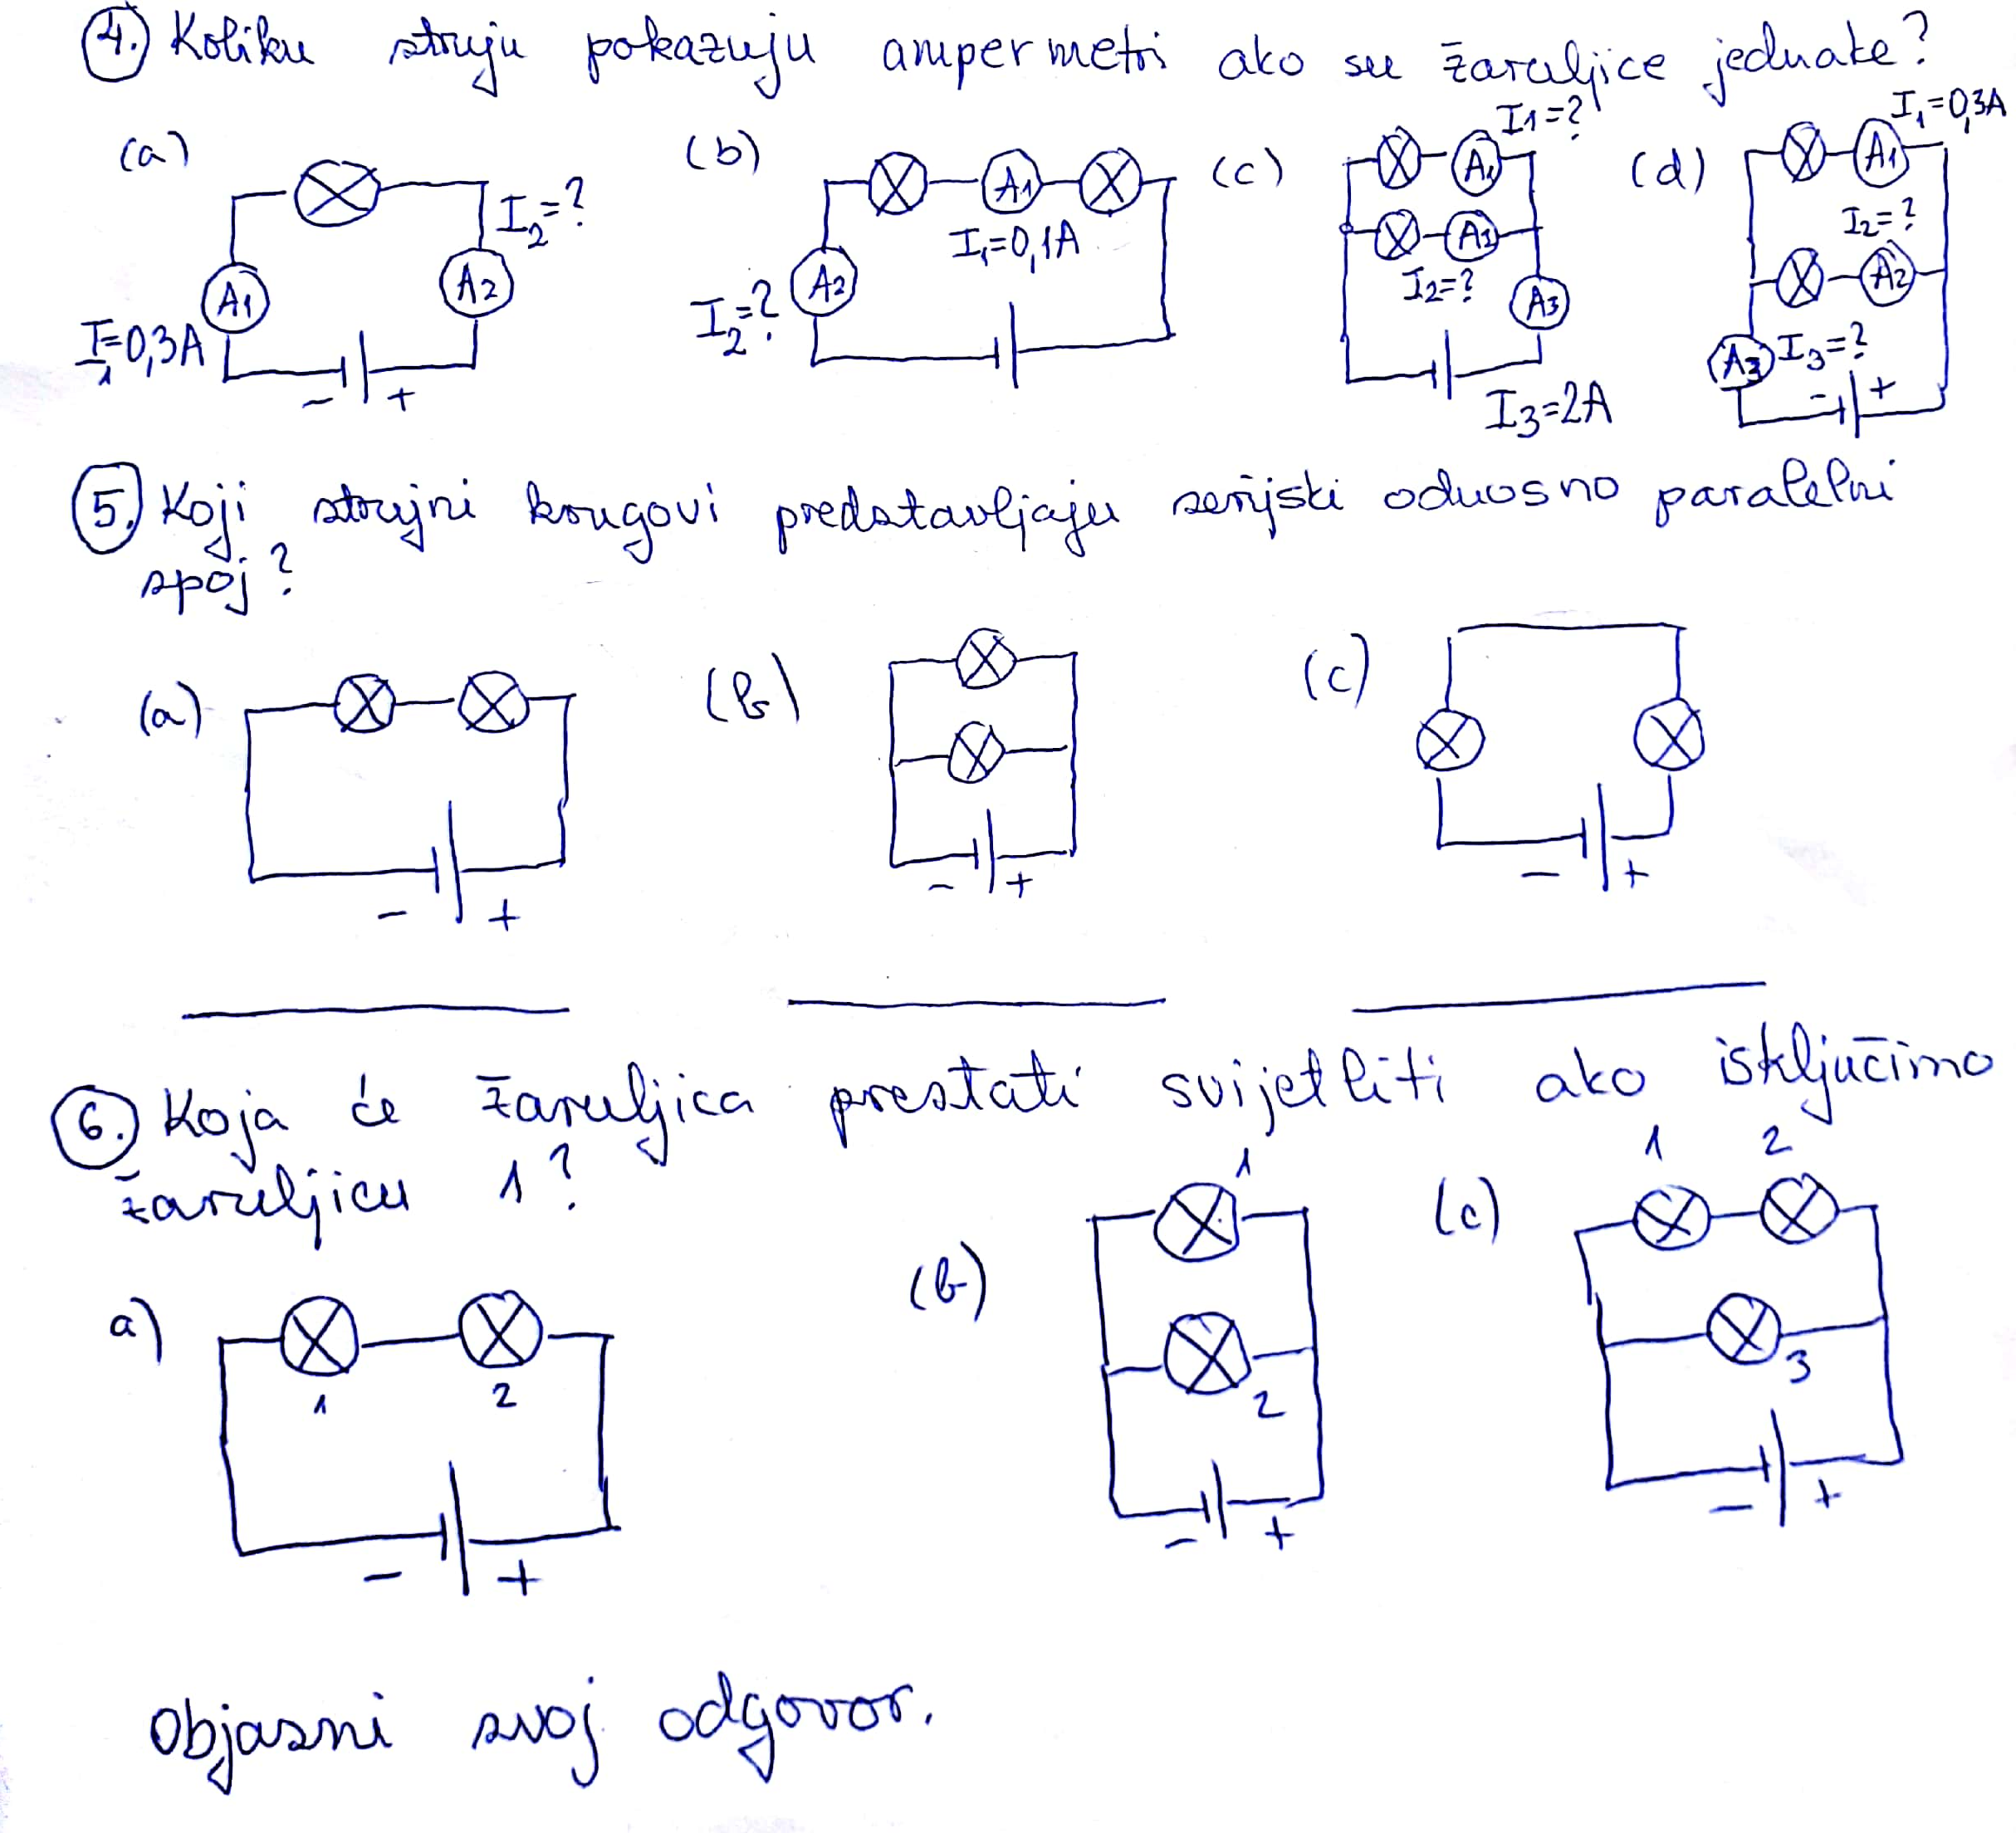 4. Koliku struju pokazuju ampermetri ako su žaruljice jednake?
(a) I₂=? A1 A2 I₁=0,3A - +
(b) A1 I₁=0,1A A2 I₂=?
(c) I1=? A1 A2 I2=? A3 I3=2A
(d) I₁=0,3A A1 I2=? A2 A3 I3=? - +
5. Koji strujni krugovi predstavljaju serijski odnosno paralelni
spoj?
(a) (b) (c)
- + - + - +
6. Koja će žaruljica prestati svijetliti ako isključimo
žaruljicu 1?
a) 1 2 - +
(b) 1 2 - +
(c) 1 2 3 - +
Objasni svoj odgovor.